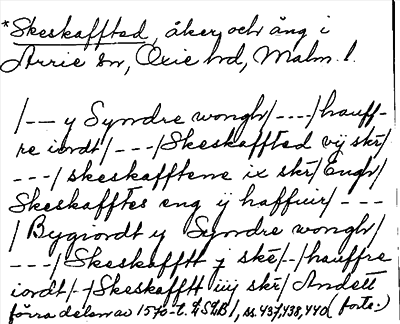 *Skeskaffted, åker och äng i
Arrie sn, Oxie hd, Malm. l.
/-- y Syndre wongh/---/hauff-
re iordt/---/Skeskaffted vÿ skr/
---/skeskafftene ix skr/Engh/
Skeskafftes eng ÿ haffuir/---
/Bygiordt y Syndre wongh/
---/Skeskafftt j skr/--/hauffre
iordt/-/Skeskafftt iiij skr/Andett
förra delen av 1570-t. LSÄB1, ss. 437, 438, 440 (forts.)